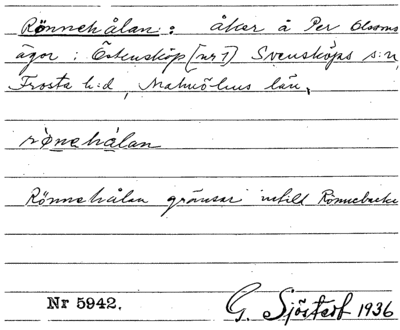 Rönnehålan : åker å Per Olssons
ägor : Östenskôp (nr 7) Svensköps s:n,
Frosta h:d, Malmöhus län.
rønehålan
Rönnehålan gränsar intill Rönnebacke
Nr 5942.
G. Sjöstedt 1936